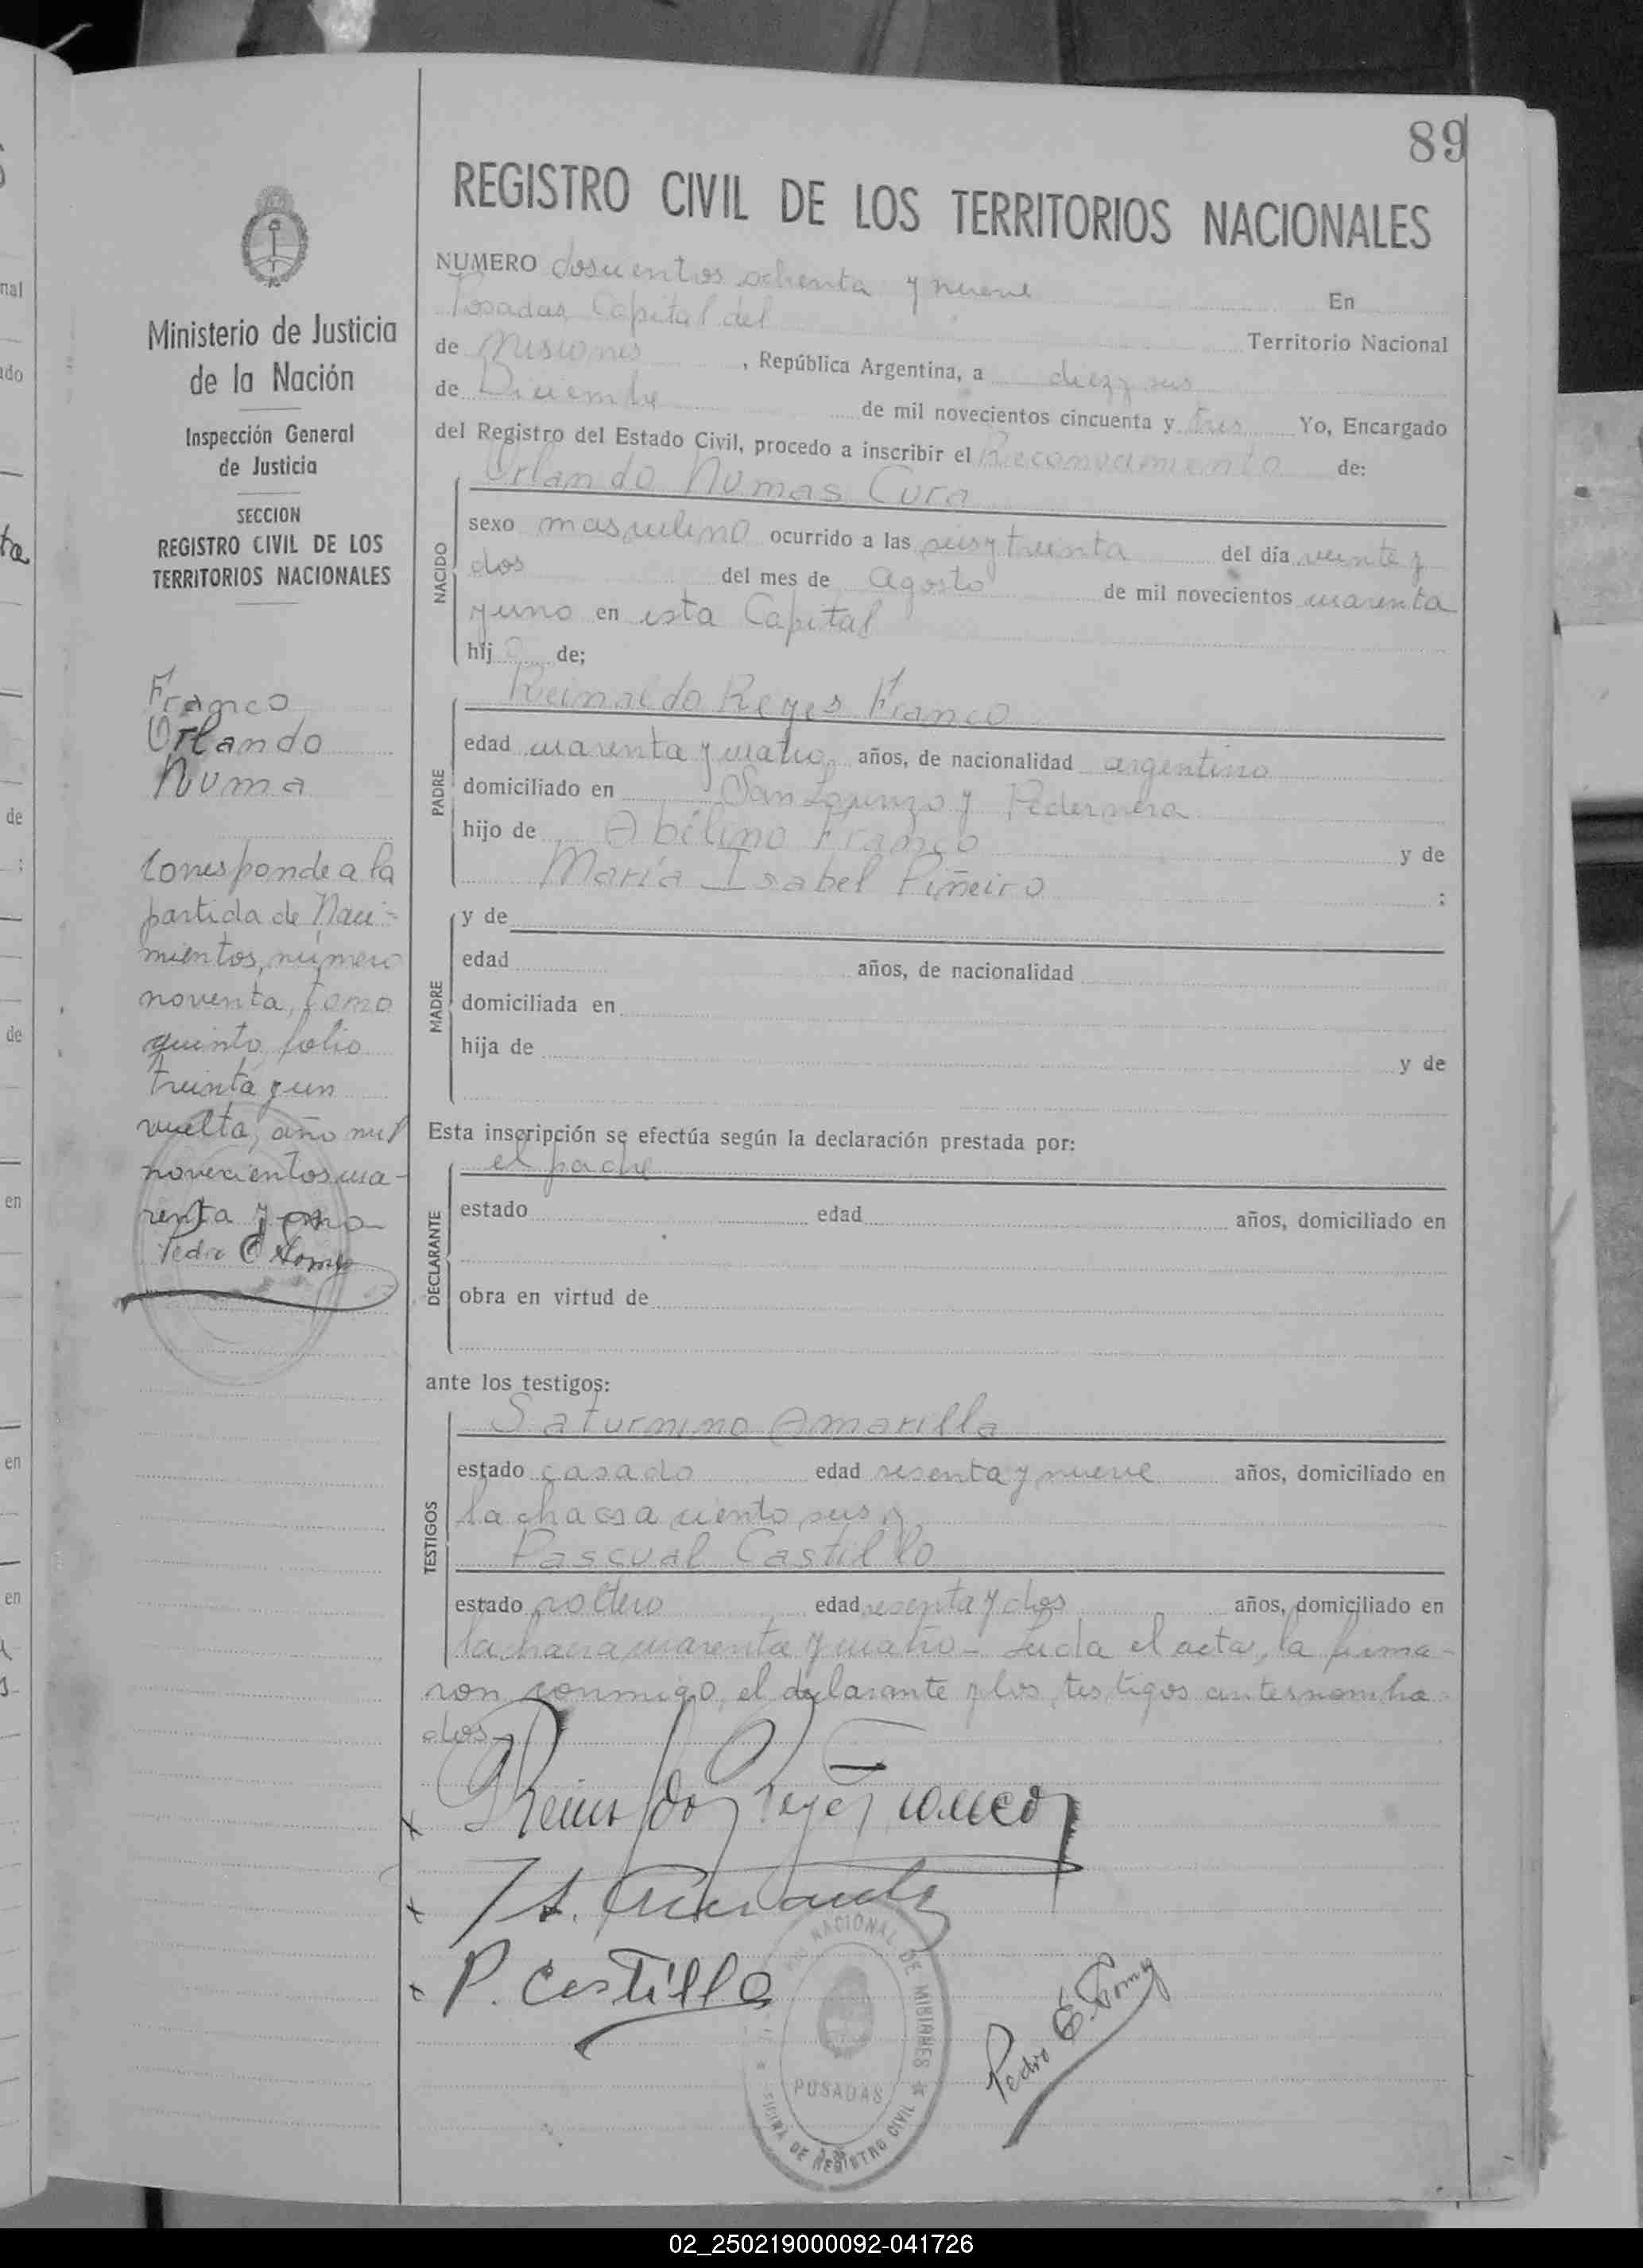 89
REGISTRO CIVIL DE LOS TERRITORIOS NACIONALES
NUMERO doscientos ochenta y nueve En
Posadas Capital del Territorio Nacional
de Misiones, República Argentina, a diez y seis
de Diciembre de mil novecientos cincuenta y tres Yo, Encargado
del Registro del Estado Civil, procedo a inscribir el Reconocimiento de:
NACIDO
Orlando Numas Cura
sexo masculino ocurrido a las seis y treinta del día veinte y
dos del mes de Agosto de mil novecientos cuarenta
y uno en esta Capital
hijo de;
PADRE
Reinaldo Reyes Franco
edad cuarenta y cuatro años, de nacionalidad argentino
domiciliado en San Lorenzo y Pedernera
hijo de Abelino Franco y de
María Isabel Piñeiro ;
MADRE
y de
edad años, de nacionalidad
domiciliada en
hija de y de
Esta inscripción se efectúa según la declaración prestada por:
DECLARANTE
el padre
estado edad años, domiciliado en
obra en virtud de
ante los testigos:
TESTIGOS
Saturnino Amarilla
estado casado edad sesenta y nueve años, domiciliado en
la chacra ciento seis y
Pascual Castillo
estado soltero edad sesenta y dos años, domiciliado en
la chacra cuarenta y cuatro - Leida el acta, la firma-
ron conmigo, el declarante y los testigos antesnombra-
dos
Reinaldo Reyes Franco
P. Castillo
Pedro E. Gomez
NACIONAL DE MISIONES
POSADAS
OFICINA DE REGISTRO CIVIL
Ministerio de Justicia
de la Nación
Inspección General
de Justicia
SECCION
REGISTRO CIVIL DE LOS
TERRITORIOS NACIONALES
Franco
Orlando
Numa
Corresponde a la
partida de Naci-
mientos, número
noventa, tomo
quinto, folio
treinta y un
vuelta, año mil
novecientos cua-
renta y uno
Pedro E Gomez
02_250219000092-041726